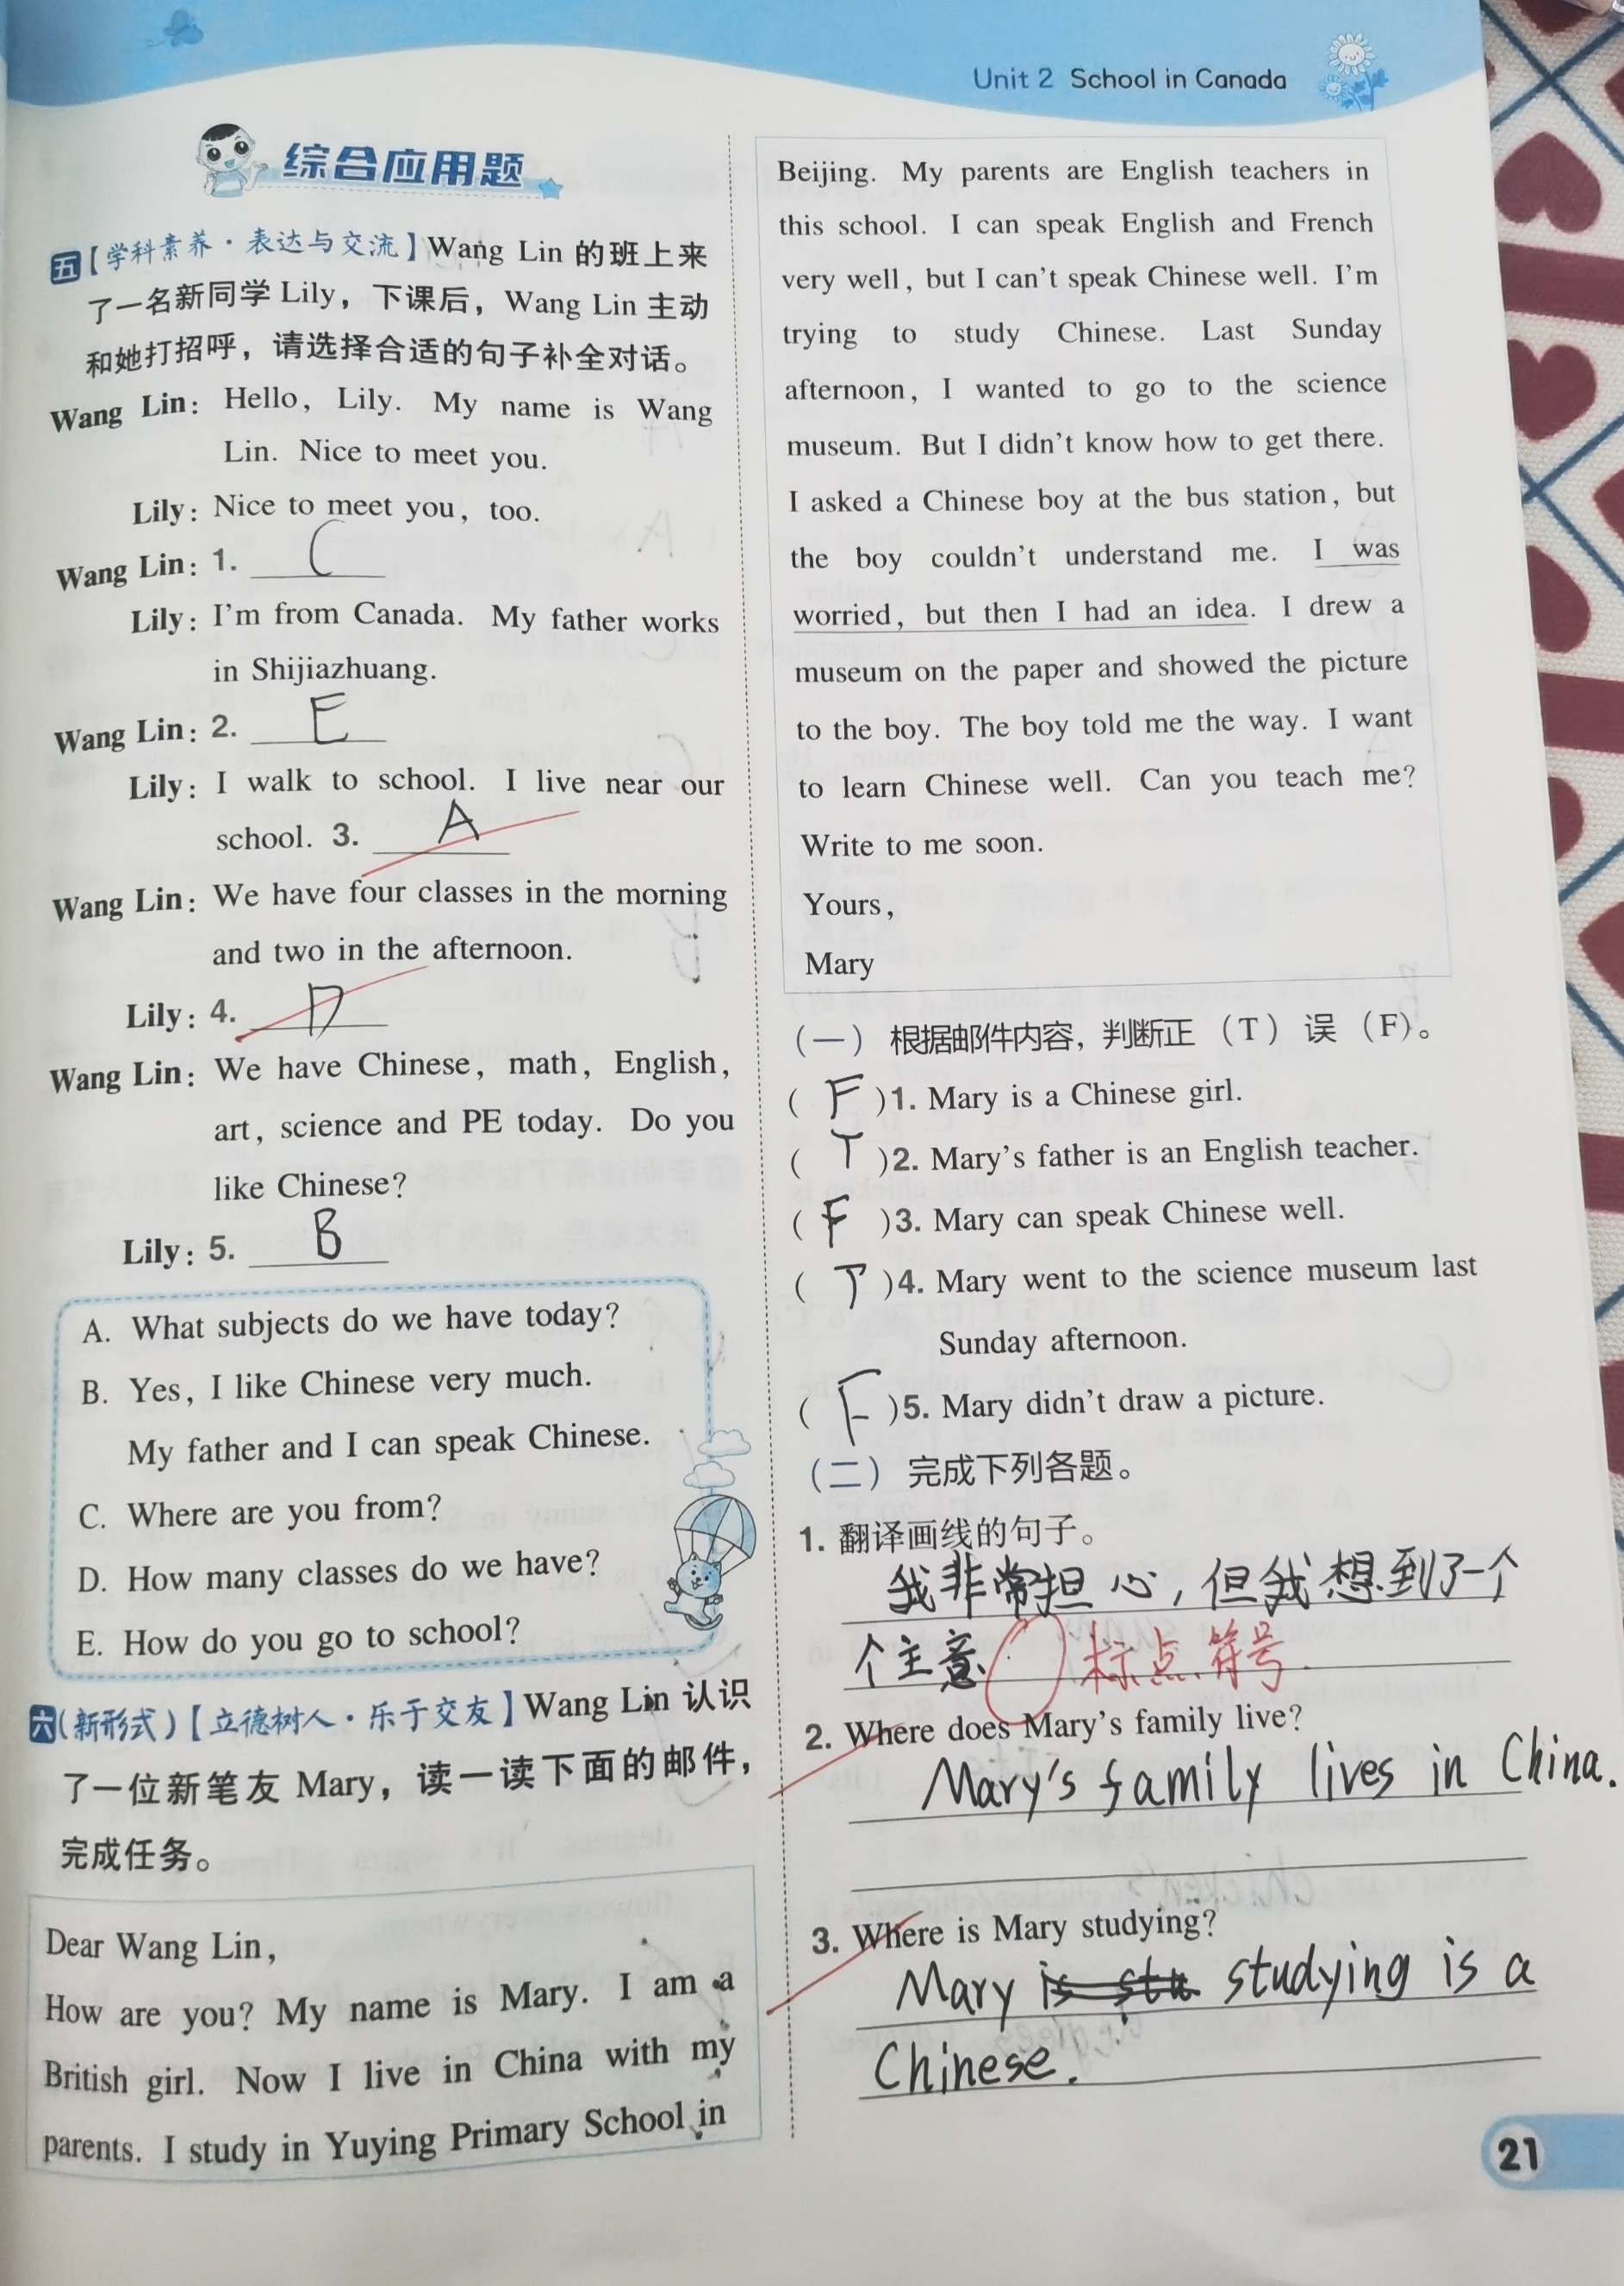 Unit 2 School in Canada
综合应用题
五【学科素养·表达与交流】Wang Lin 的班上来
了一名新同学 Lily，下课后，Wang Lin 主动
和她打招呼，请选择合适的句子补全对话。
Wang Lin: Hello, Lily. My name is Wang
Lin. Nice to meet you.
Lily: Nice to meet you, too.
Wang Lin: 1. C
Lily: I'm from Canada. My father works
in Shijiazhuang.
Wang Lin: 2. E
Lily: I walk to school. I live near our
school. 3. A
Wang Lin: We have four classes in the morning
and two in the afternoon.
Lily: 4. D
Wang Lin: We have Chinese, math, English,
art, science and PE today. Do you
like Chinese?
Lily: 5. B
A. What subjects do we have today?
B. Yes, I like Chinese very much.
My father and I can speak Chinese.
C. Where are you from?
D. How many classes do we have?
E. How do you go to school?
六（新形式）【立德树人·乐于交友】Wang Lin 认识
了一位新笔友 Mary，读一读下面的邮件，
完成任务。
Dear Wang Lin,
How are you? My name is Mary. I am a
British girl. Now I live in China with my
parents. I study in Yuying Primary School in
Beijing. My parents are English teachers in
this school. I can speak English and French
very well, but I can't speak Chinese well. I'm
trying to study Chinese. Last Sunday
afternoon, I wanted to go to the science
museum. But I didn't know how to get there.
I asked a Chinese boy at the bus station, but
the boy couldn't understand me. I was
worried, but then I had an idea. I drew a
museum on the paper and showed the picture
to the boy. The boy told me the way. I want
to learn Chinese well. Can you teach me?
Write to me soon.
Yours,
Mary
（一）根据邮件内容，判断正（T）误（F）。
( F )1. Mary is a Chinese girl.
( T )2. Mary's father is an English teacher.
( F )3. Mary can speak Chinese well.
( T )4. Mary went to the science museum last
Sunday afternoon.
( F )5. Mary didn't draw a picture.
（二）完成下列各题。
1. 翻译画线的句子。
我非常担心，但我想到了一个
个主意 标点符号
2. Where does Mary's family live?
Mary's family lives in China.
3. Where is Mary studying?
Mary is stu studying is a
Chinese.
21